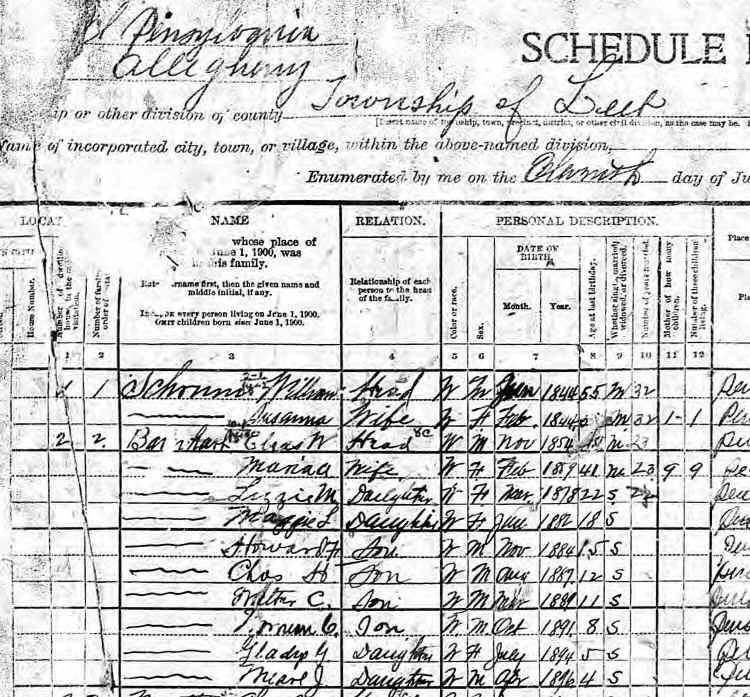 Pennsylvania
Allegheny
SCHEDULE
ip or other division of county Township of Leet
[Insert name of township, town, precinct, district, or other civil division, as the case may be.
Name of incorporated city, town, or village, within the above-named division,
Enumerated by me on the day of Ju
LOCAT
NAME
RELATION.
PERSONAL DESCRIPTION.
House Number.
Number of dwelling house, in the order of visitation.
Number of family, in order of
whose place of
June 1, 1900, was
this family.
surname first, then the given name and
middle initial, if any.
every person living on June 1, 1900.
OMIT children born since June 1, 1900.
Relationship of each
person to the head
of the family.
Color or race.
Sex.
DATE OF
BIRTH.
Month.
Year.
Age at last birthday.
Whether single, married,
widowed, or divorced.
Number of years married.
Mother of how many
children.
Number of these children
living.
Place
Pl
1 2 3 4 5 6 7 8 9 10 11 12
1 1 William Head W M 1844 55 M 32
Susanna Wife W F Feb 1844 M 32 1 - 1
2 2 Barnhart Elias W Head W M Nov 1854 M 23
Maria Wife W F Feb 1859 41 M 23 9 9
Lizzie M Daughter W F Mar 1878 22 S
Maggie L Daughter W F June 1882 18 S
Howard F Son W M Nov 1884 15 S
Chas H Son W M Aug 1887 12 S
Walter C. Son W M Mar 1889 11 S
C. Son W M Oct 1891 8 S
Gladys G Daughter W F July 1894 5 S
J Daughter W M Apr 1896 4 S